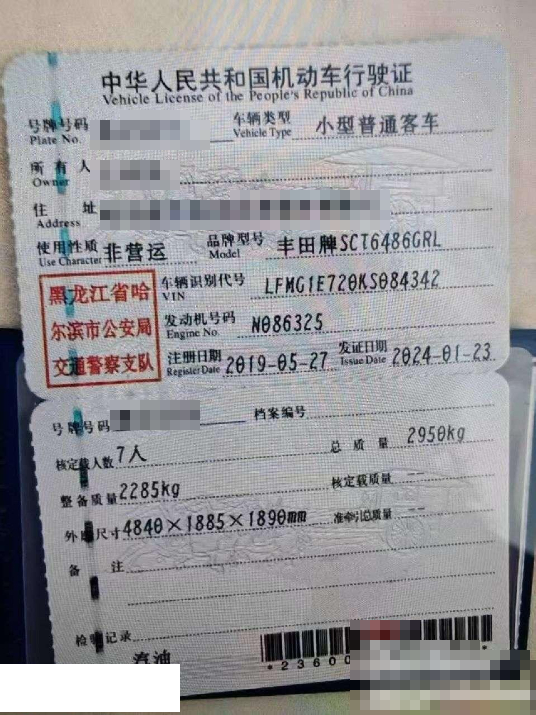 中华人民共和国机动车行驶证
Vehicle License of the People's Republic of China
号牌号码 车辆类型 小型普通客车
Plate No. Vehicle Type
所有人
Owner
住址
Address
使用性质 非营运 品牌型号 丰田牌SCT6486GRL
Use Character Model
黑龙江省哈
尔滨市公安局
交通警察支队
车辆识别代号 LFMG1E720KS084342
VIN
发动机号码 N086325
Engine No.
注册日期 2019-05-27 发证日期 2024-01-23
Register Date Issue Date
号牌号码 档案编号
核定载人数 7人 总质量 2950kg
整备质量 2285kg 核定载质量 --
外廓尺寸 4840×1885×1890mm 准牵引总质量 --
备注
检验记录
汽油
*23600